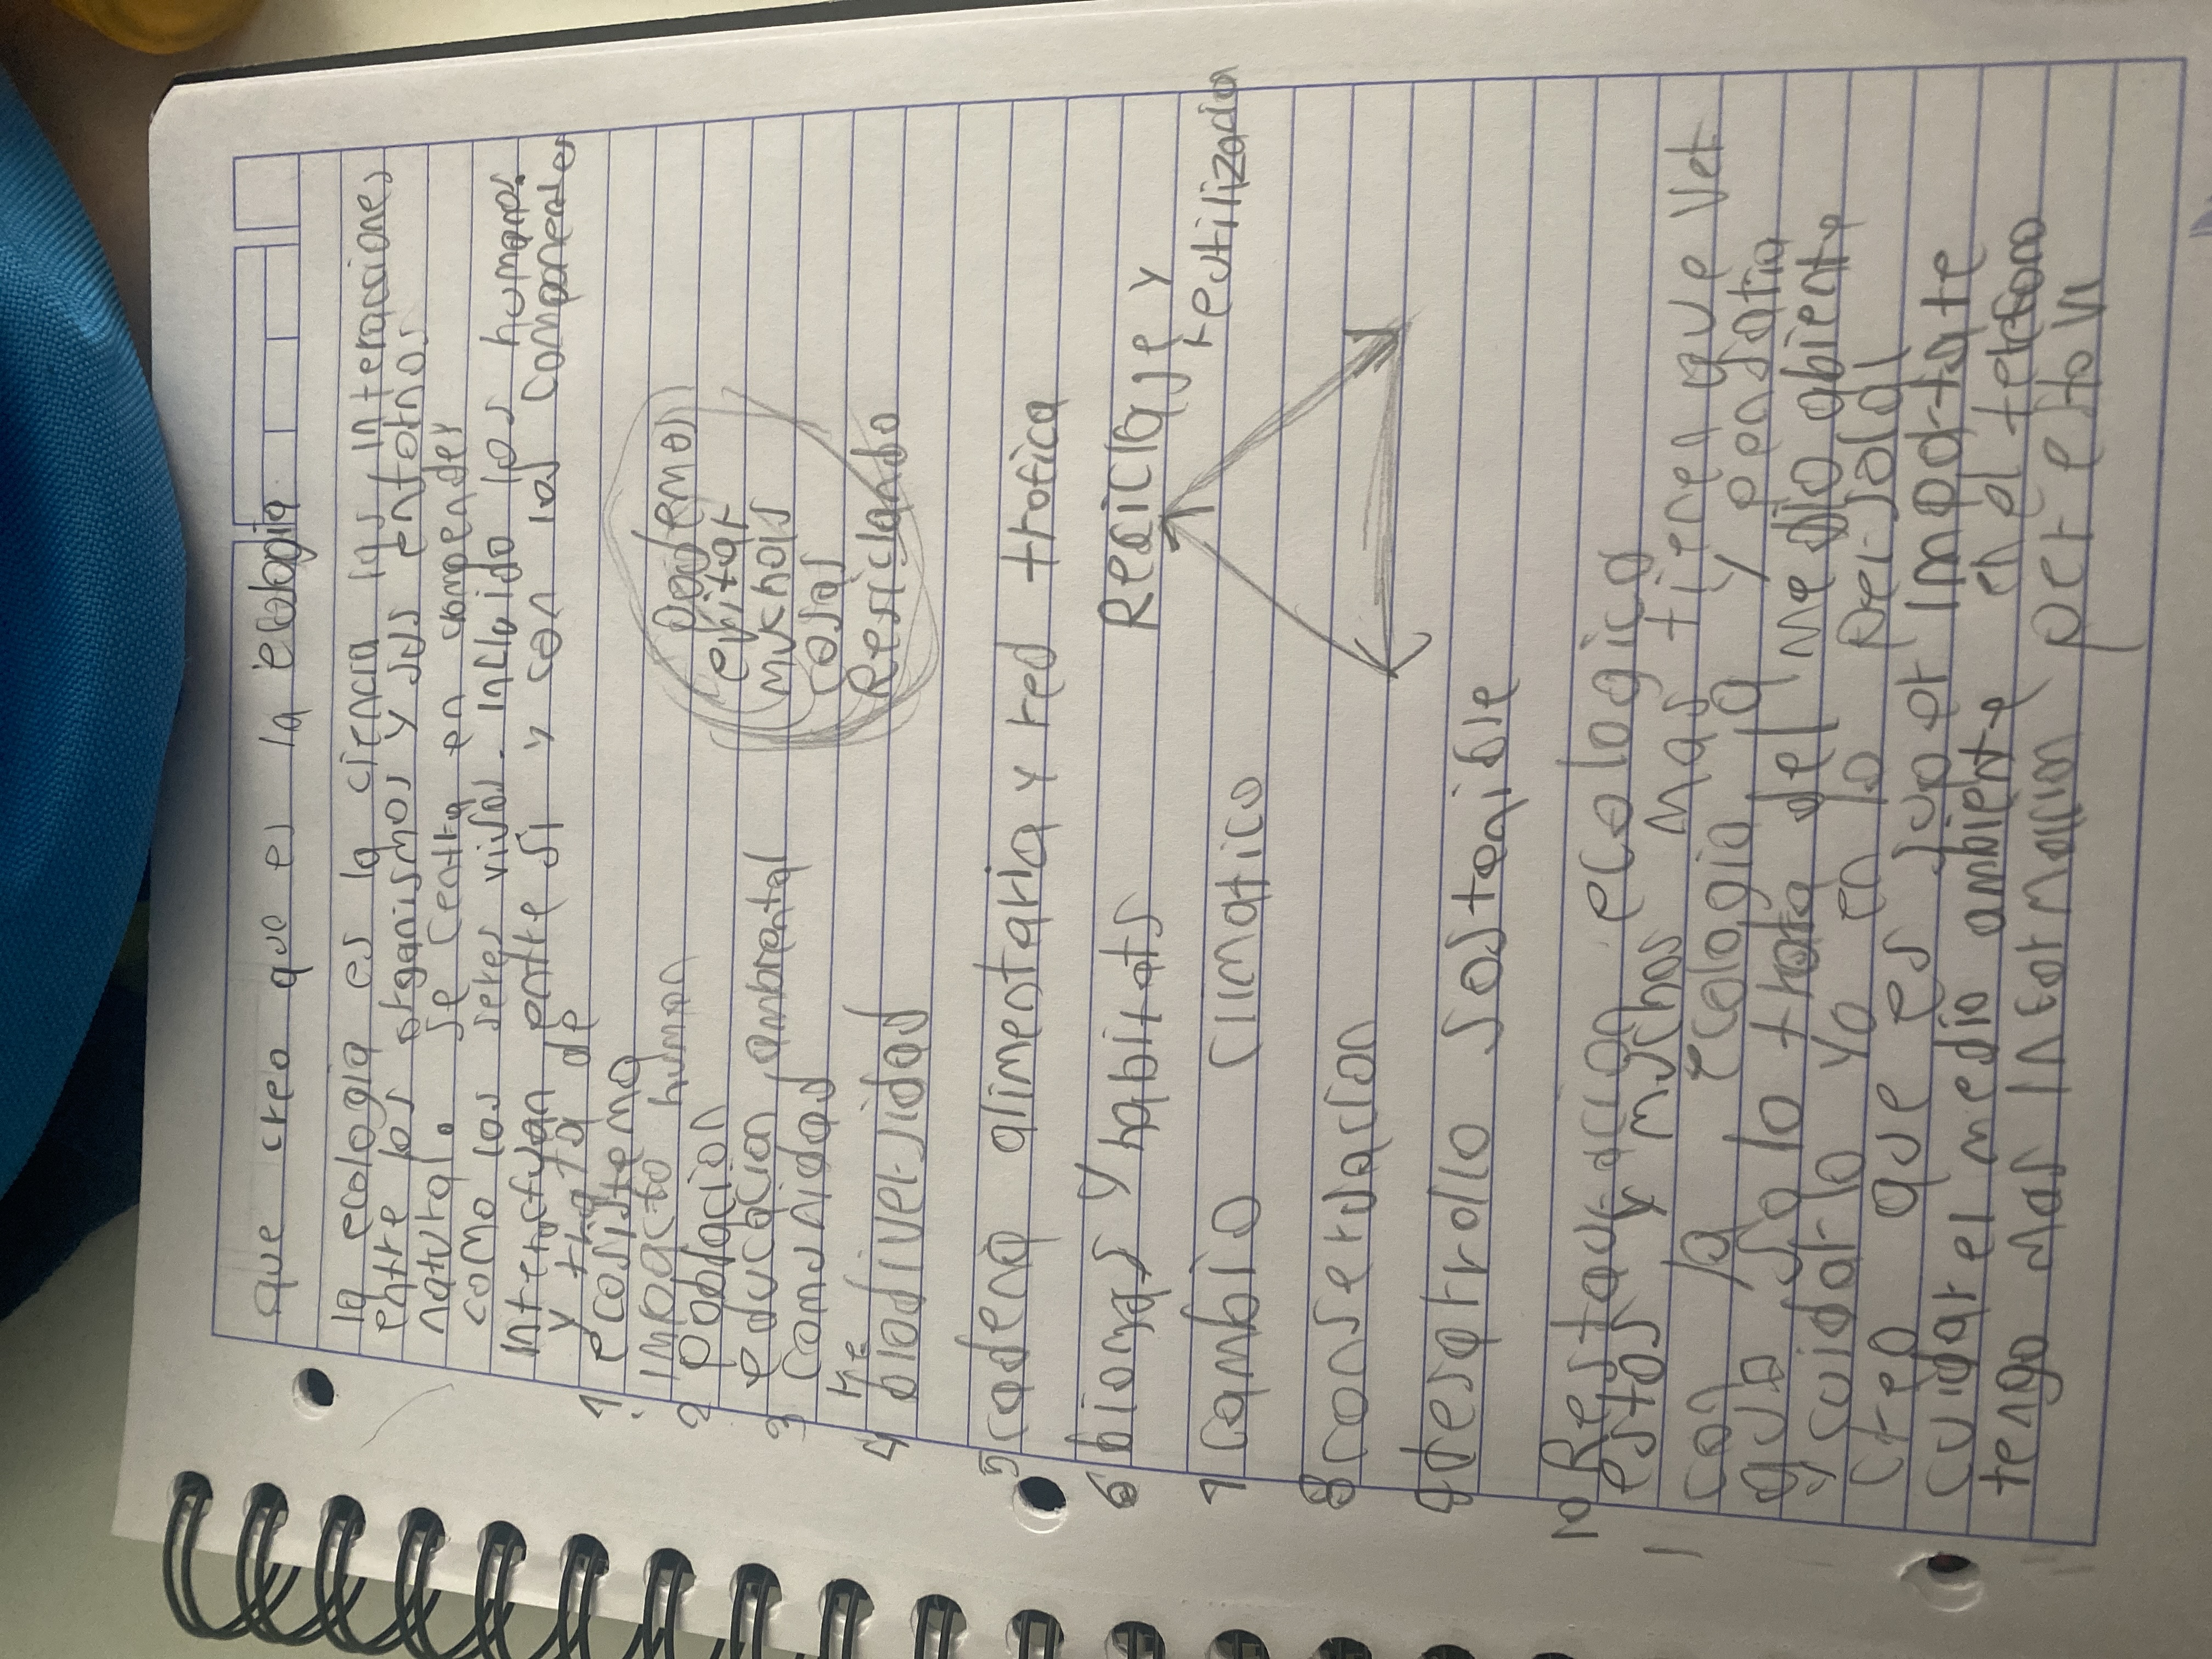 que creo que es la ecologia
la ecologia es la ciencia las interacciones
entre los organismos y sus entornos
natural. se centra en compender
como los seres vivos. incluido los humanos.
interactuan entre si y con los componentes
y trata de
1 ecosistema
impacto human
2 poblacion
3 educacion ambiental
comunidad
4 biodiversidad
podemos
evitar
muchois
cosas
Resiclando
5 cadena alimentaria y red trotica
6 biomas y habitats
Resiclaje y
reutilizacion
7 cambio climatico
8 conservacion
9 desarrollo sostenible
10 Restauracion ecologica
estos y muchos mas tienen que ver
con la ecologia la y pensatia
que so lo trata del medio abiente
y cuidarlo yo en lo personal
creo que es super importate
cuidar el medio ambiente en el
tengo mas informacion per esto